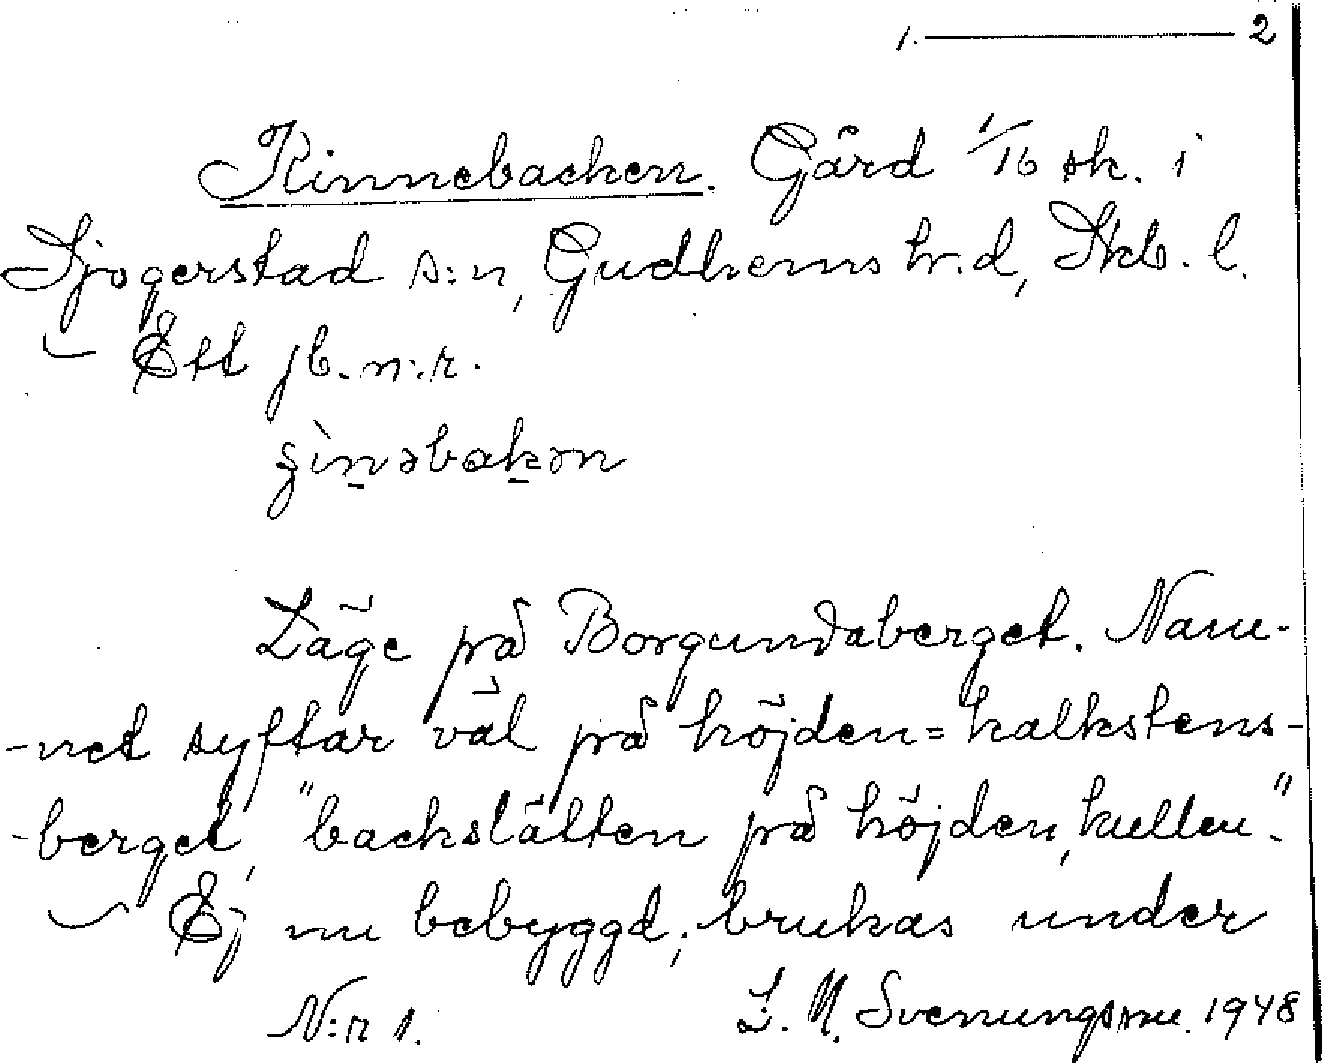 1. ——— 2
Kinnebacken. Gård 1/16 sk. i
Sjogerstad s:n, Gudhems hr.d, Skb. l.
– Ett jb. n:r.
Läge på Borgundaberget. Nam-
-net syftar väl på höjden = kalkstens-
-berget, "backslätten på höjden, kullen".
– Ej nu bebyggd; brukas under
N:r 1. L. M. Svenungsson. 1948